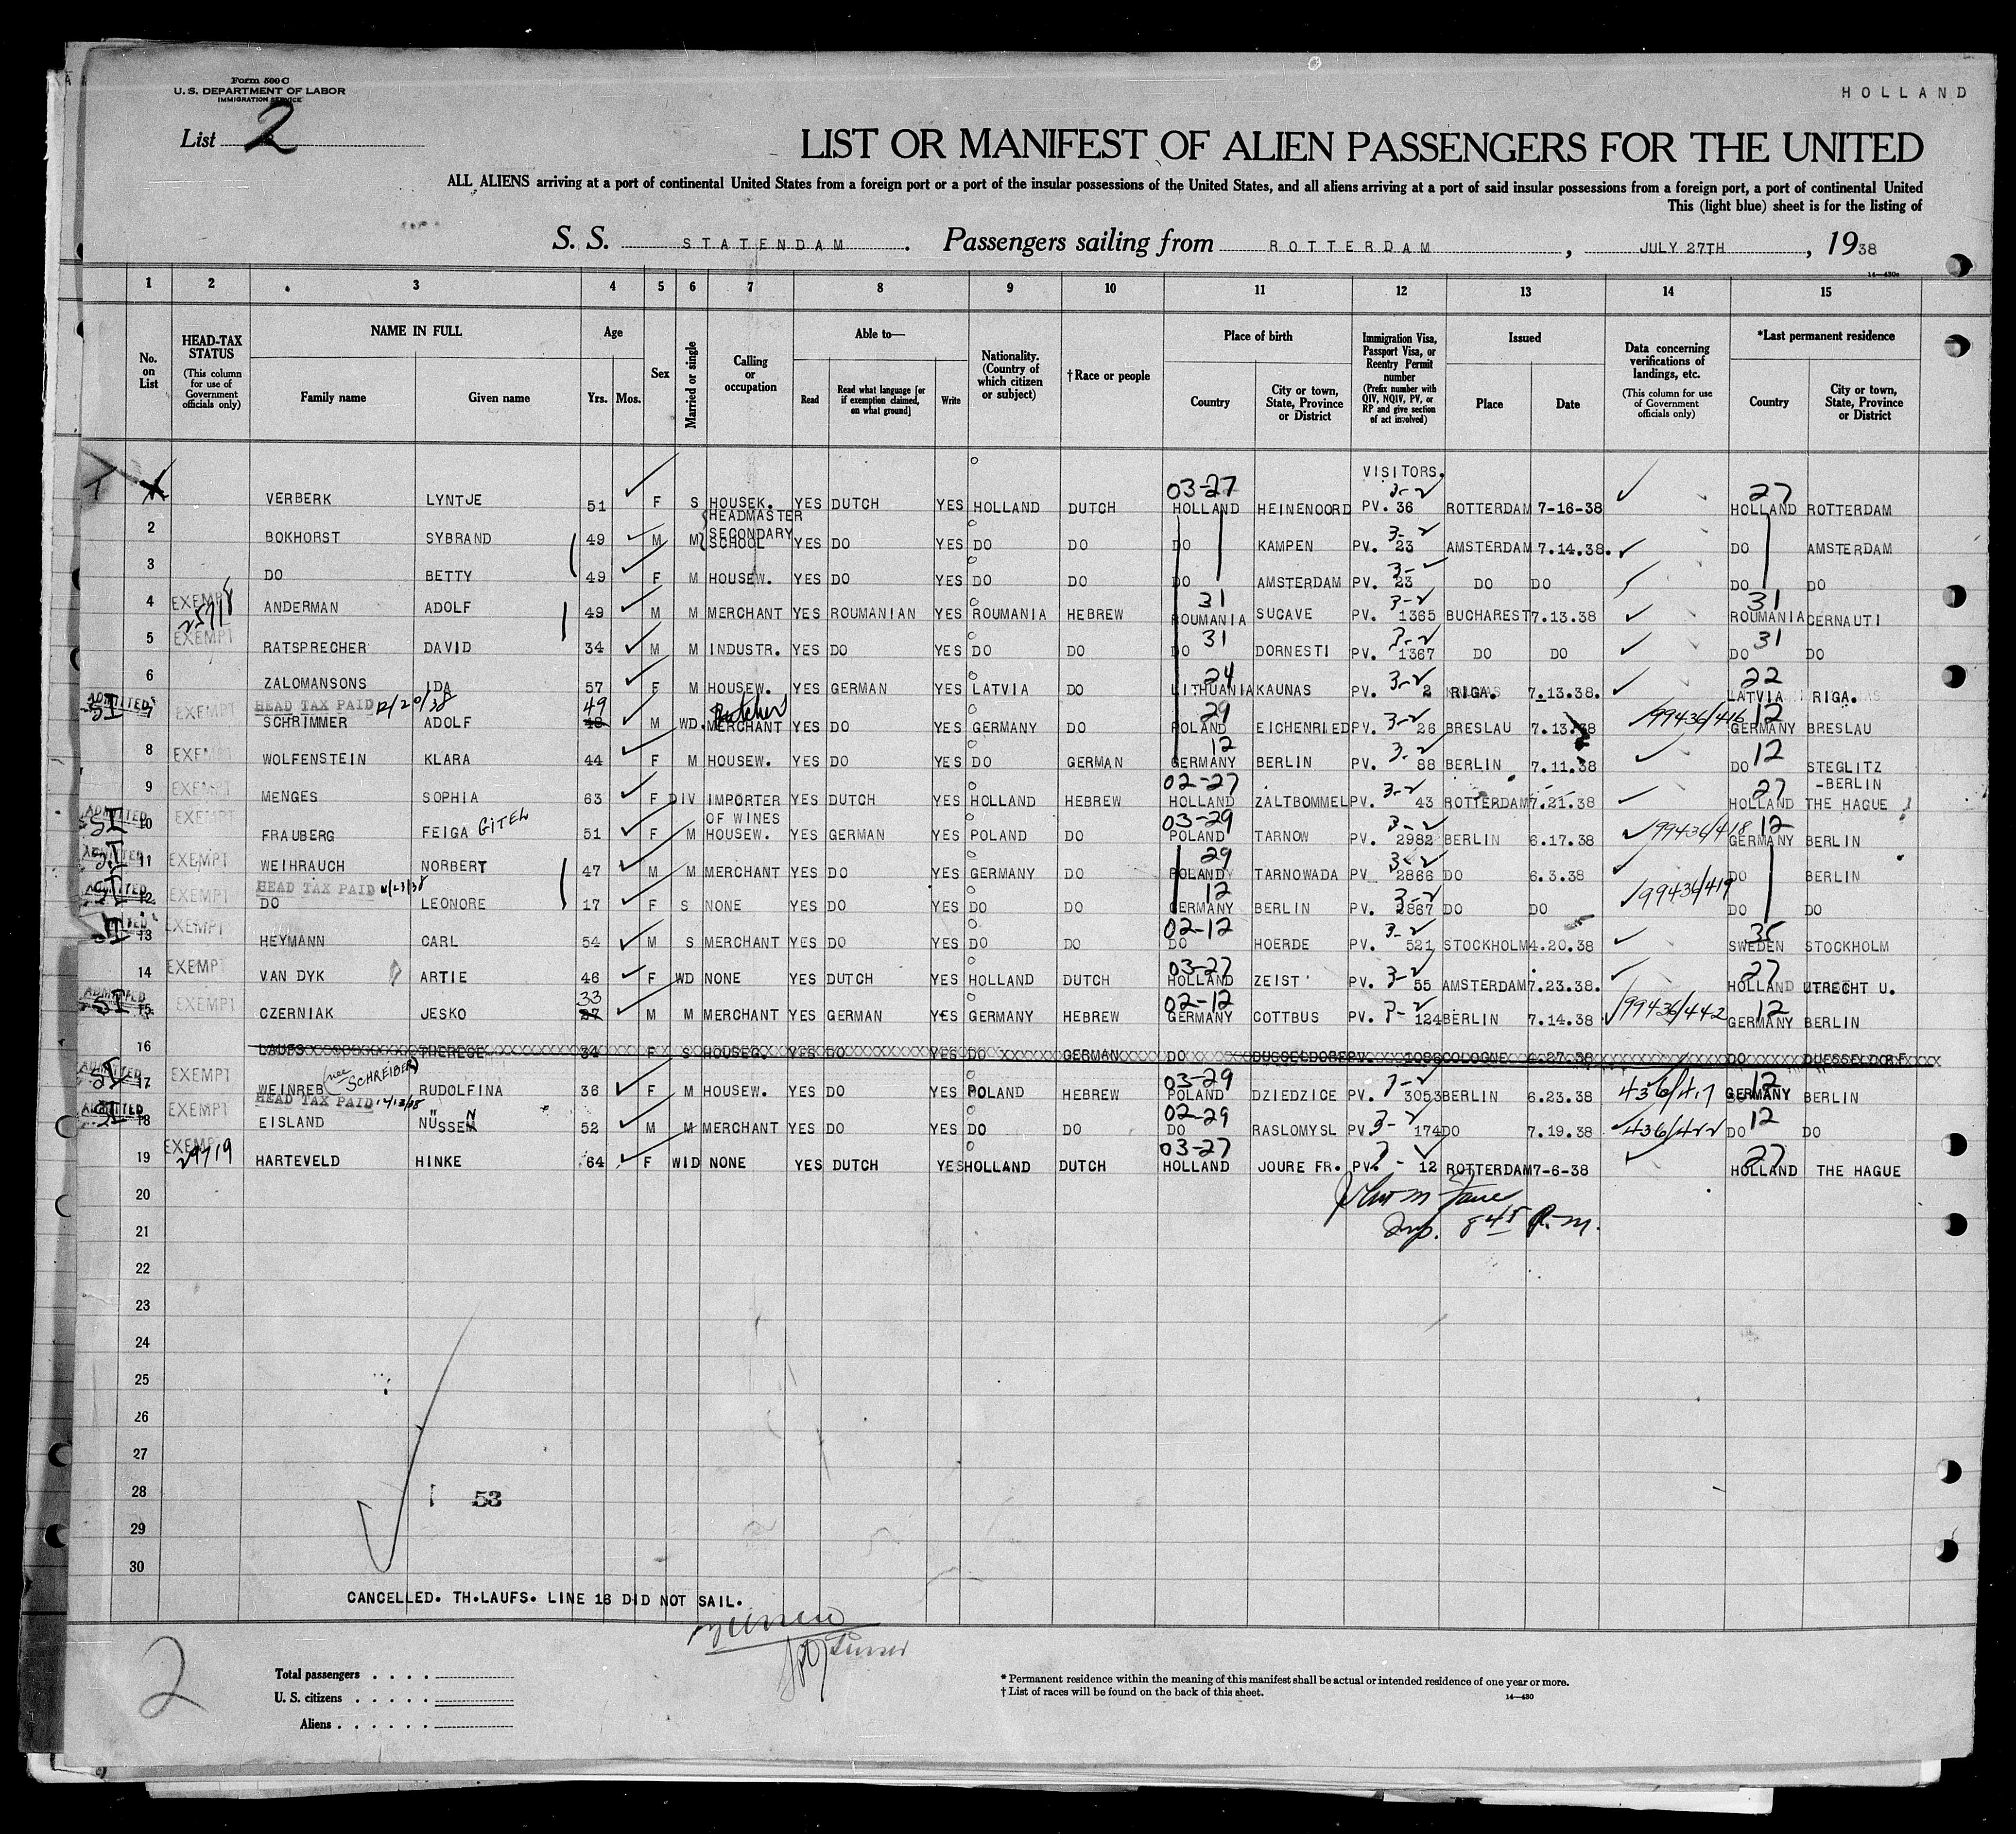 Form 500 C
U. S. DEPARTMENT OF LABOR
IMMIGRATION SERVICE
HOLLAND
List 2
LIST OR MANIFEST OF ALIEN PASSENGERS FOR THE UNITED
ALL ALIENS arriving at a port of continental United States from a foreign port or a port of the insular possessions of the United States, and all aliens arriving at a port of said insular possessions from a foreign port, a port of continental United
This (light blue) sheet is for the listing of
S. S. STATENDAM. Passengers sailing from ROTTERDAM, JULY 27TH, 1938
14—430c
1 2 3 4 5 6 7 8 9 10 11 12 13 14 15
No. on List
HEAD-TAX STATUS (This column for use of Government officials only)
NAME IN FULL
Family name
Given name
Age
Yrs. Mos.
Sex
Married or single
Calling or occupation
Able to—
Read
Read what language [or if exemption claimed, on what ground]
Write
Nationality. (Country of which citizen or subject)
†Race or people
Place of birth
Country
City or town, State, Province or District
Immigration Visa, Passport Visa, or Reentry Permit number (Prefix number with QIV, NQIV, PV, or RP and give section of act involved)
Issued
Place
Date
Data concerning verifications of landings, etc. (This column for use of Government officials only)
*Last permanent residence
Country
City or town, State, Province or District
VISITORS.
03-27 3-2 27
VERBERK LYNTJE 51 F S HOUSEK. YES DUTCH YES HOLLAND DUTCH HOLLAND HEINENOORD PV. 36 ROTTERDAM 7-16-38 HOLLAND ROTTERDAM
HEADMASTER SECONDARY SCHOOL
2 BOKHORST SYBRAND 49 M M YES DO YES DO DO DO KAMPEN PV. 3-2 23 AMSTERDAM 7.14.38. DO AMSTERDAM
3 DO BETTY 49 F M HOUSEW. YES DO YES DO DO DO AMSTERDAM PV. 23 DO DO DO DO
4 EXEMPT ANDERMAN ADOLF 49 M M MERCHANT YES ROUMANIAN YES ROUMANIA HEBREW 31 ROUMANIA SUCAVE PV. 3-2 1365 BUCHAREST 7.13.38 31 ROUMANIA CERNAUTI
5 EXEMPT RATSPRECHER DAVID 34 M M INDUSTR. YES DO YES DO DO 31 DO DORNESTI PV. 3-2 1367 DO DO 31 DO DO
6 ZALOMANSONS IDA 57 F M HOUSEW. YES GERMAN YES LATVIA DO 24 LITHUANIA KAUNAS PV. 3-2 2 RIGA. 7.13.38. 22 LATVIA RIGA.
ADMITTED SI 7 EXEMPT HEAD TAX PAID 12/20/38
SCHRIMMER ADOLF 49 48 M WD. Butcher MERCHANT YES DO YES GERMANY DO 29 POLAND EICHENRIED PV. 3-2 26 BRESLAU 7.13.38 99436/416 12 GERMANY BRESLAU
8 EXEMPT WOLFENSTEIN KLARA 44 F M HOUSEW. YES DO YES DO GERMAN 12 GERMANY BERLIN PV. 3-2 88 BERLIN 7.11.38 DO 12 STEGLITZ -BERLIN
9 EXEMPT MENGES SOPHIA 63 F DIV IMPORTER OF WINES YES DUTCH YES HOLLAND HEBREW 02-27 HOLLAND ZALTBOMMEL PV. 3-2 43 ROTTERDAM 7.21.38 27 HOLLAND THE HAGUE
ADMITTED SI 10 EXEMPT FRAUBERG FEIGA GITEL 51 F M HOUSEW. YES GERMAN YES POLAND DO 03-29 POLAND TARNOW PV. 3-2 2982 BERLIN 6.17.38 99436/418 12 GERMANY BERLIN
ADMITTED SI 11 EXEMPT WEIHRAUCH NORBERT 47 M M MERCHANT YES DO YES GERMANY DO 29 POLAND TARNOWADA PV 3-2 2866 DO 6.3.38 DO BERLIN
ADMITTED SI 12 EXEMPT HEAD TAX PAID
DO LEONORE 17 F S NONE YES DO YES DO DO 12 GERMANY BERLIN PV. 3-2 2867 DO DO 99436/419 DO DO
SI 13 EXEMPT HEYMANN CARL 54 M S MERCHANT YES DO YES DO DO 02-12 DO HOERDE PV. 3-2 521 STOCKHOLM 4.20.38 35 SWEDEN STOCKHOLM
14 EXEMPT VAN DYK ARTIE 46 F WD NONE YES DUTCH YES HOLLAND DUTCH 03-27 HOLLAND ZEIST PV. 3-2 55 AMSTERDAM 7.23.38. 27 HOLLAND UTRECHT U.
ADMITTED SI 15 EXEMPT CZERNIAK JESKO 33 37 M M MERCHANT YES GERMAN YES GERMANY HEBREW 02-12 GERMANY COTTBUS PV. 3-2 124 BERLIN 7.14.38 99436/442 12 GERMANY BERLIN
16 LAUFS THERESE 34 F S HOUSEG. YES DO YES DO GERMAN DO DUSSELDORF PV. 1086 COLOGNE 6.27.38 DO DUESSELDORF
SI 17 EXEMPT WEINREB (nee SCHREIBER) RUDOLFINA 36 F M HOUSEW. YES DO YES POLAND HEBREW 03-29 POLAND DZIEDZICE PV. 3053 BERLIN 6.23.38 436/417 12 GERMANY BERLIN
ADMITTED SI 18 EXEMPT HEAD TAX PAID
EISLAND NÜSSEN 52 M M MERCHANT YES DO YES DO DO 02-29 DO RASLOMYSL PV. 3-2 174 DO 7.19.38 436/422 DO 12 DO
19 EXEMPT HARTEVELD HINKE 64 F WID NONE YES DUTCH YES HOLLAND DUTCH 03-27 HOLLAND JOURE FR. PV. 12 ROTTERDAM 7-6-38 27 HOLLAND THE HAGUE
20
Insp. 8 45 P.M.
21
22
23
24
25
26
27
28 53
29
30
CANCELLED. TH.LAUFS. LINE 16 DID NOT SAIL.
2
Total passengers . . . .
U. S. citizens . . . . .
Aliens . . . . . .
* Permanent residence within the meaning of this manifest shall be actual or intended residence of one year or more.
† List of races will be found on the back of this sheet.
14—430